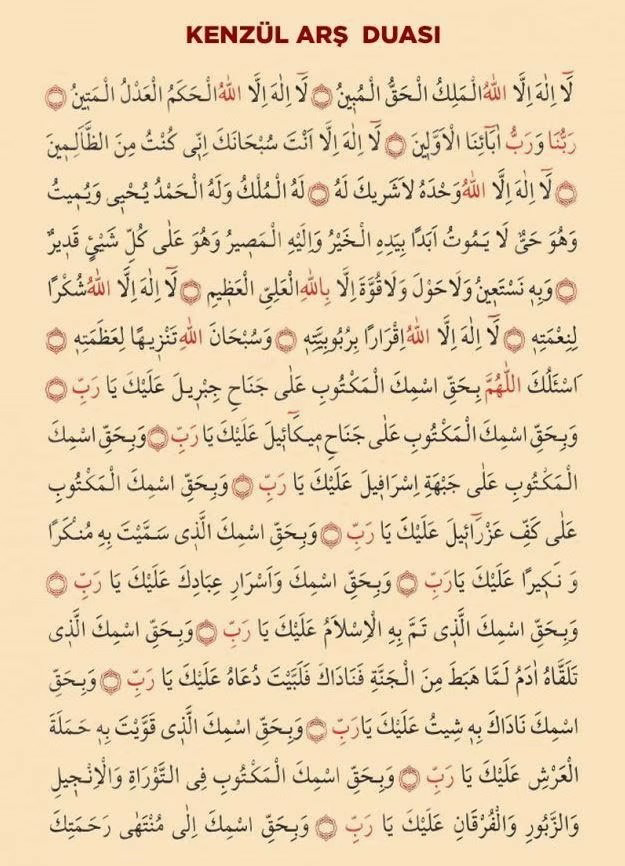 KENZÜL ARŞ DUASI
لَٓا اِلٰهَ اِلَّا اللّٰهُ الْمَلِكُ الْحَقُّ الْمُبٖينُ ۝ لَٓا اِلٰهَ اِلَّا اللّٰهُ الْحَكَمُ الْعَدْلُ الْمَتٖينُ ۝
رَبُّنَا وَرَبُّ اٰبَٓائِنَا الْاَوَّلٖينَ ۝ لَٓا اِلٰهَ اِلَّٓا اَنْتَ سُبْحَانَكَ اِنّٖى كُنْتُ مِنَ الظَّالِمٖينَ
۝ لَٓا اِلٰهَ اِلَّا اللّٰهُ وَحْدَهُ لَاشَرٖيكَ لَهُ ۝ لَهُ الْمُلْكُ وَلَهُ الْحَمْدُ يُحْيٖى وَيُمٖيتُ
وَهُوَ حَىٌّ لَا يَمُوتُ اَبَدًا بِيَدِهِ الْخَيْرُ وَاِلَيْهِ الْمَصٖيرُ وَهُوَ عَلٰى كُلِّ شَيْئٍ قَدٖيرٌ
۝ وَبِهٖ نَسْتَعٖينُ وَلَاحَوْلَ وَلَاقُوَّةَ اِلَّا بِاللّٰهِ الْعَلِىِّ الْعَظٖيمِ ۝ لَٓا اِلٰهَ اِلَّا اللّٰهُ شُكْرًا
لِنِعْمَتِهٖ ۝ لَٓا اِلٰهَ اِلَّا اللّٰهُ اِقْرَارًا بِرُبُوبِيَّتِهٖ ۝ وَسُبْحَانَ اللّٰهِ تَنْزٖيهًا لِعَظَمَتِهٖ ۝
اَسْئَلُكَ اللّٰهُمَّ بِحَقِّ اسْمِكَ الْمَكْتُوبِ عَلٰى جَنَاحِ جِبْرٖيلَ عَلَيْكَ يَا رَبِّ ۝
وَبِحَقِّ اسْمِكَ الْمَكْتُوبِ عَلٰى جَنَاحِ مٖيكَٓائٖيلَ عَلَيْكَ يَا رَبِّ ۝ وَبِحَقِّ اسْمِكَ
الْمَكْتُوبِ عَلٰى جَبْهَةِ اِسْرَافٖيلَ عَلَيْكَ يَا رَبِّ ۝ وَبِحَقِّ اسْمِكَ الْمَكْتُوبِ
عَلٰى كَفِّ عَزْرَٓائٖيلَ عَلَيْكَ يَا رَبِّ ۝ وَبِحَقِّ اسْمِكَ الَّذٖى سَمَّيْتَ بِهٖ مُنْكَرًا
وَ نَكٖيرًا عَلَيْكَ يَارَبِّ ۝ وَبِحَقِّ اسْمِكَ وَاَسْرَارِ عِبَادِكَ عَلَيْكَ يَا رَبِّ ۝
وَبِحَقِّ اسْمِكَ الَّذٖى تَمَّ بِهِ الْاِسْلَامُ عَلَيْكَ يَا رَبِّ ۝ وَبِحَقِّ اسْمِكَ الَّذٖى
تَلَقَّاهُ اٰدَمُ لَمَّا هَبَطَ مِنَ الْجَنَّةِ فَنَادَاكَ فَلَبَّيْتَ دُعَاهُ عَلَيْكَ يَا رَبِّ ۝ وَبِحَقِّ
اسْمِكَ نَادَاكَ بِهٖ شِيتُ عَلَيْكَ يَارَبِّ ۝ وَبِحَقِّ اسْمِكَ الَّذٖى قَوَّيْتَ بِهٖ حَمَلَةَ
الْعَرْشِ عَلَيْكَ يَا رَبِّ ۝ وَبِحَقِّ اسْمِكَ الْمَكْتُوبِ فِى التَّوْرَاةِ وَالْاِنْجٖيلِ
وَالزَّبُورِ وَالْفُرْقَانِ عَلَيْكَ يَا رَبِّ ۝ وَبِحَقِّ اسْمِكَ اِلٰى مُنْتَهٰى رَحْمَتِكَ